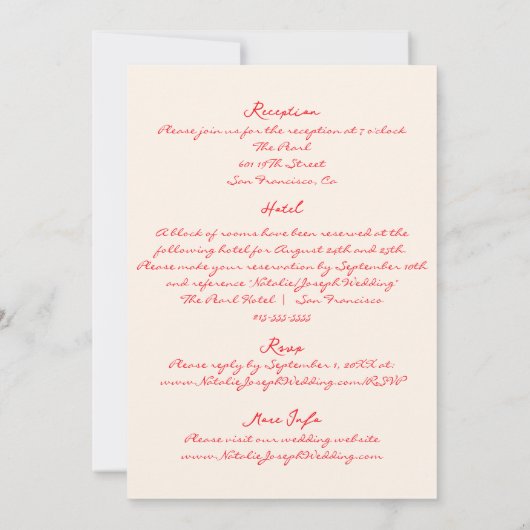 Reception
Please join us for the reception at 7 o'clock
The Pearl
601 19Th Street
San Francisco, Ca
Hotel
A block of rooms have been reserved at the
following hotel for August 24th and 25th.
Please make your reservation by September 10th
and reference "Natalie/JosephWedding"
The Pearl Hotel | San Francisco
213-555-5555
Rsvp
Please reply by September 1, 20XX at:
www.NatalieJosephWedding.com/RSVP
More Info
Please visit our wedding website
www.NatalieJosephWedding.com